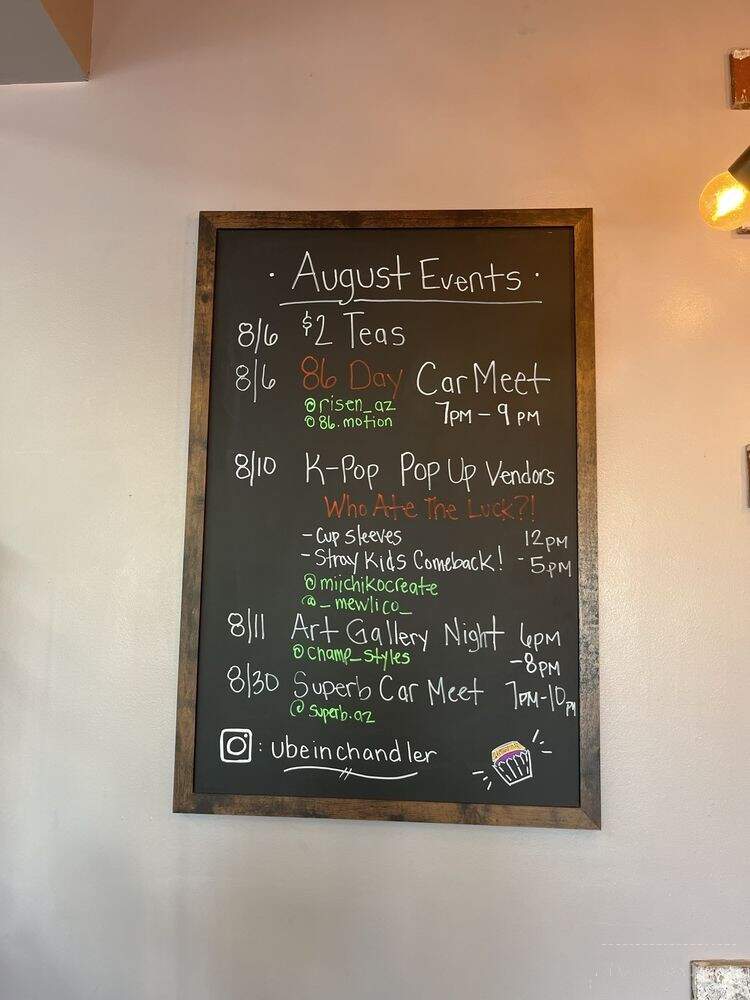 · August Events ·
8/6 $2 Teas
8/6 86 Day Car Meet
@risen_az 7PM - 9 PM
@86.motion
8/10 K-Pop Pop Up Vendors
Who Ate The Luck?!
- Cup sleeves 12PM
- Stray Kids Comeback! - 5PM
@miichikocreate
@_mewlico_
8/11 Art Gallery Night 6PM
@champ_styles - 8PM
8/30 Superb Car Meet 7PM-10PM
@superb.az
: ubeinchandler